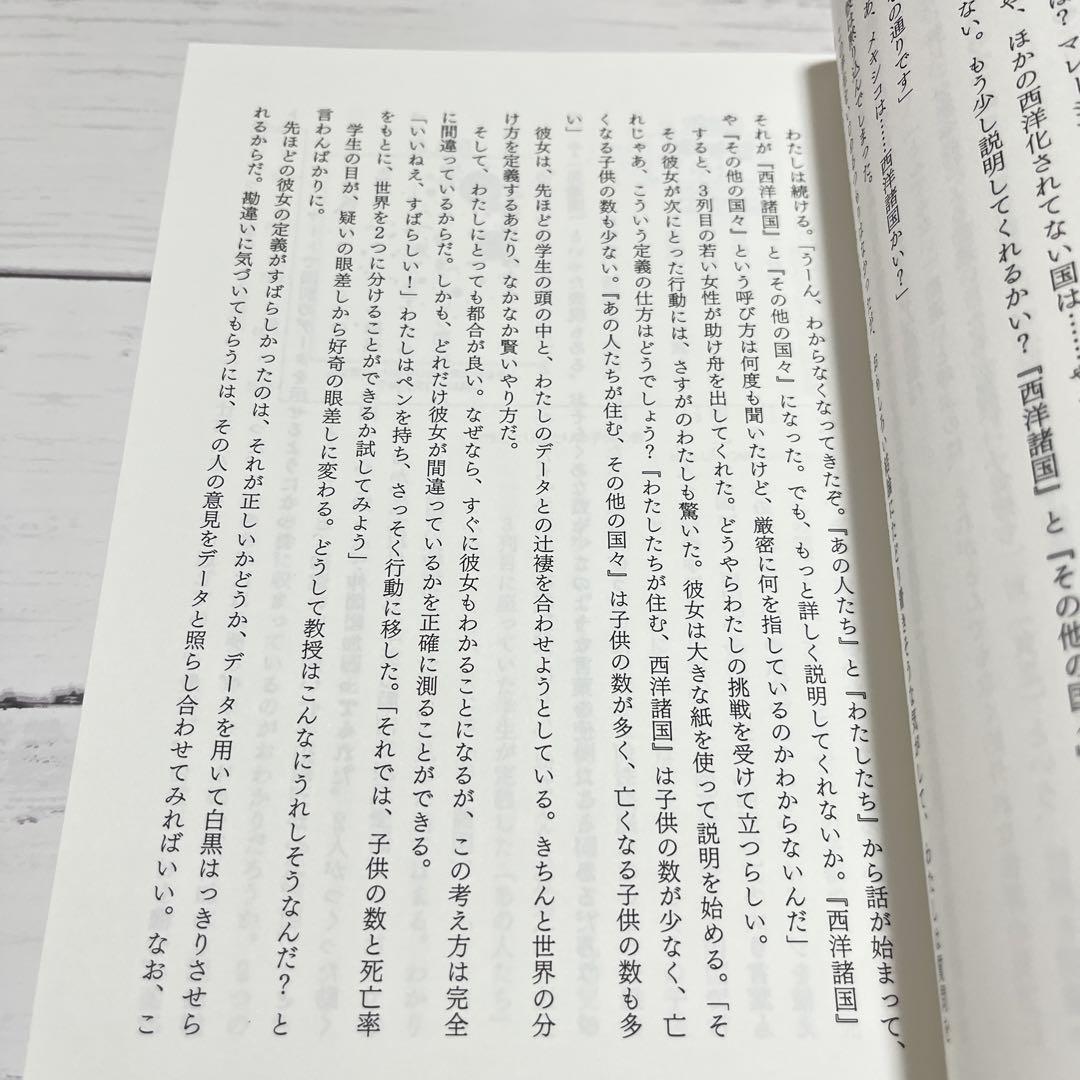 は？ マレー
や、ほかの西洋化されてない国は……や
ない。もう少し説明してくれるかい？『西洋諸国』と『その他の国
の通りです」
あ、メキシコは……西洋諸国かい？」
わたしは続ける。「うーん、わからなくなってきたぞ。『あの人たち』と『わたしたち』から話が始まって、
それが『西洋諸国』と『その他の国々』になった。でも、もっと詳しく説明してくれないか。『西洋諸国』
や『その他の国々』という呼び方は何度も聞いたけど、厳密に何を指しているのかわからないんだ」
すると、3列目の若い女性が助け舟を出してくれた。どうやらわたしの挑戦を受けて立つらしい。
その彼女が次にとった行動には、さすがのわたしも驚いた。彼女は大きな紙を使って説明を始める。「そ
れじゃあ、こういう定義の仕方はどうでしょう？『わたしたちが住む、西洋諸国』は子供の数が少なく、亡
くなる子供の数も少ない。『あの人たちが住む、その他の国々』は子供の数が多く、亡くなる子供の数も多
い」
彼女は、先ほどの学生の頭の中と、わたしのデータとの辻褄を合わせようとしている。きちんと世界の分
け方を定義するあたり、なかなか賢いやり方だ。
そして、わたしにとっても都合が良い。なぜなら、すぐに彼女もわかることになるが、この考え方は完全
に間違っているからだ。しかも、どれだけ彼女が間違っているかを正確に測ることができる。
「いいねえ、すばらしい！」わたしはペンを持ち、さっそく行動に移した。「それでは、子供の数と死亡率
をもとに、世界を2つに分けることができるか試してみよう」
学生の目が、疑いの眼差しから好奇の眼差しに変わる。どうして教授はこんなにうれしそうなんだ？と
言わんばかりに。
先ほどの彼女の定義がすばらしかったのは、それが正しいかどうか、データを用いて白黒はっきりさせら
れるからだ。勘違いに気づいてもらうには、その人の意見をデータと照らし合わせてみればいい。なお、こ